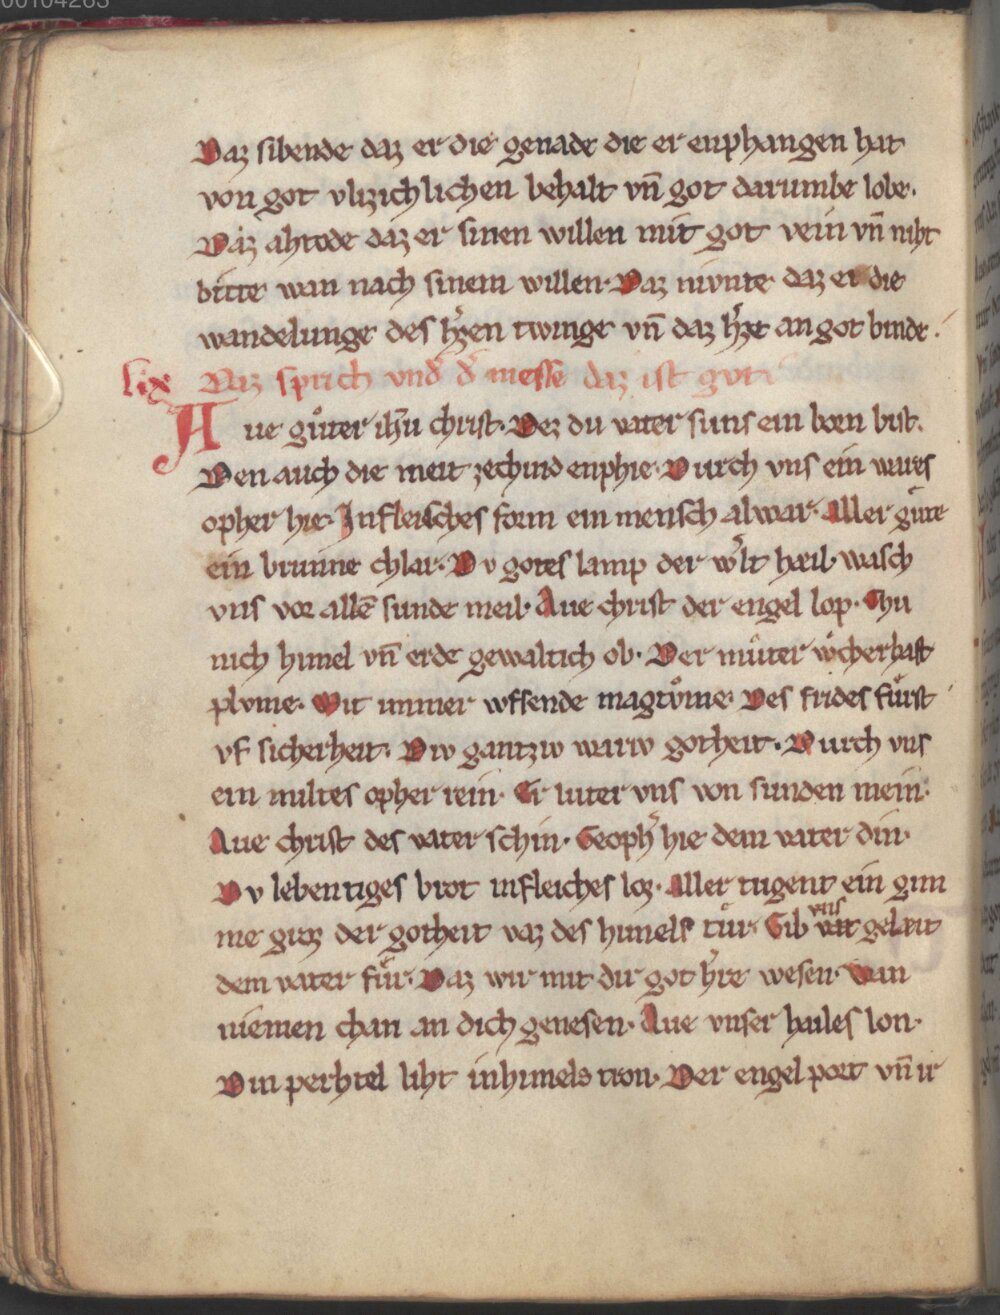 Daz sibende daz er die genade die er enphangen hat
von got vlizichlichen behalt vn̄ got darumbe lobe.
Daz ahtode daz er sinen willen mit got vein vn̄ niht
bitte wan nach sinem willen. Daz nivnte daz er die
wandelunge des hꝰzen twinge vn̄ daz hꝰze an got binde.
lix Daz sprich vndꝰ dꝰ messe daz ist gvt
Aue guͦter ih̄u christ. Dez du vater suns ein born bist.
Den auch die meit enphie. Durch vns ein wares
opher hie. In fleisches form ein mensch alwar. Aller guͤte
ein brunne chlar. Dv gotes lamp der wꝰlt hæil. wasch
vns vor allē sunde meil. Aue christ der engel lop. Chu
nich himel vn̄ erde gewaltich ob. Der muͤter wͦcherhaft
plvme. Mit immer wffende magtvͦme. Des frides fuͤrst
vf sicherheit. Div gantziv wariv gotheit. Durch vns
ein miltes opher rein. Er luter vns von sunden mein.
Aue christ des vater schin. Geophꝰ hie dem vater din.
Dv lebentiges brot in fleiches loz. Aller tugent ein gim
me groz der gotheit vaz des himels tuͤr. Gib vns gelæit
dem vater fuͤr. Daz wir mit dir got hꝰre wesen. Wan
niemen chan an dich genesen. Aue vnser hailes lon.
Din perhtel liht in himels tron. Der engel port vn̄ ir